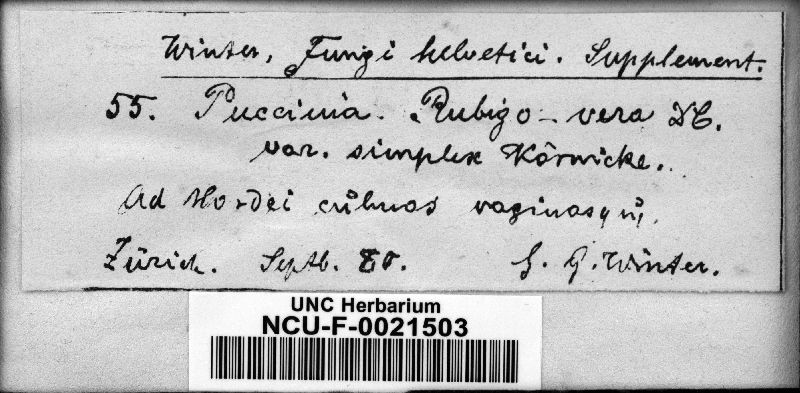 Winter, Fungi helvetici. Supplement.
55. Puccinia. Rubigo-vera DC.
var. simplex Körnicke.
Ad Hordei culmos vaginasq
Zürich. Septb. 80. G. Winter.
UNC Herbarium
NCU-F-0021503